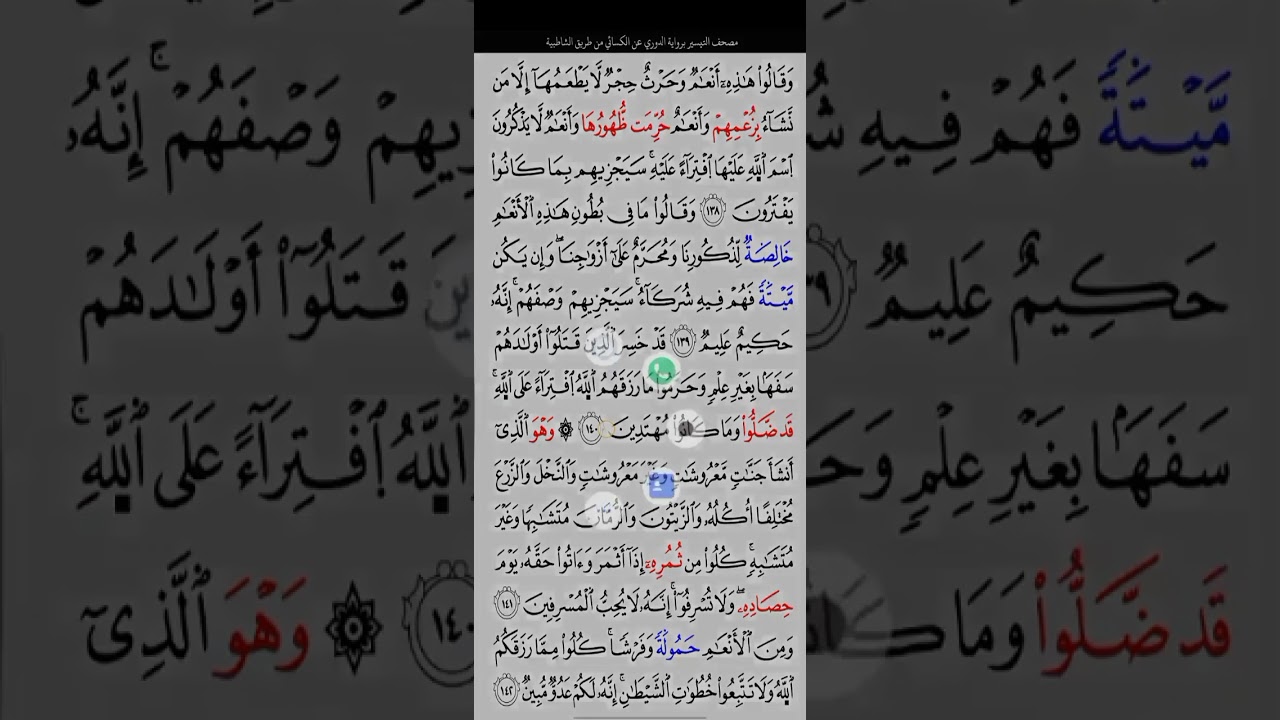 مصحف التيسير برواية الدوري عن الكسائي من طريق الشاطبية
وَقَالُوا۟ هَـٰذِهِۦٓ أَنْعَـٰمٌ وَحَرْثٌ حِجْرٌ لَّا يَطْعَمُهَآ إِلَّا مَن
نَّشَآءُ بِزُعْمِهِمْ وَأَنْعَـٰمٌ حُرِّمَت ظُّهُورُهَا وَأَنْعَـٰمٌ لَّا يَذْكُرُونَ
ٱسْمَ ٱللَّهِ عَلَيْهَا ٱفْتِرَآءً عَلَيْهِۚ سَيَجْزِيهِم بِمَا كَانُوا۟
يَفْتَرُونَ ١٣٨ وَقَالُوا۟ مَا فِى بُطُونِ هَـٰذِهِ ٱلْأَنْعَـٰمِ
خَالِصَةٌ لِّذُكُورِنَا وَمُحَرَّمٌ عَلَىٰٓ أَزْوَٰجِنَاۖ وَإِن يَكُن
مَّيْتَةً فَهُمْ فِيهِ شُرَكَآءُۚ سَيَجْزِيهِمْ وَصْفَهُمْۚ إِنَّهُۥ
حَكِيمٌ عَلِيمٌ ١٣٩ قَدْ خَسِرَ ٱلَّذِينَ قَتَلُوٓا۟ أَوْلَـٰدَهُمْ
سَفَهًۢا بِغَيْرِ عِلْمٍ وَحَرَّمُوا۟ مَا رَزَقَهُمُ ٱللَّهُ ٱفْتِرَآءً عَلَى ٱللَّهِۚ
قَد ضَّلُّوا۟ وَمَا كَانُوا۟ مُهْتَدِينَ ١٤٠ ۞ وَهْوَ ٱلَّذِىٓ
أَنشَأَ جَنَّـٰتٍ مَّعْرُوشَـٰتٍ وَغَيْرَ مَعْرُوشَـٰتٍ وَٱلنَّخْلَ وَٱلزَّرْعَ
مُخْتَلِفًا أُكُلُهُۥ وَٱلزَّيْتُونَ وَٱلرُّمَّانَ مُتَشَـٰبِهًا وَغَيْرَ
مُتَشَـٰبِهٍۚ كُلُوا۟ مِن ثُمُرِهِۦٓ إِذَآ أَثْمَرَ وَءَاتُوا۟ حَقَّهُۥ يَوْمَ
حِصَادِهِۦۖ وَلَا تُسْرِفُوٓا۟ۚ إِنَّهُۥ لَا يُحِبُّ ٱلْمُسْرِفِينَ ١٤١
وَمِنَ ٱلْأَنْعَـٰمِ حَمُولَةً وَفَرْشًاۚ كُلُوا۟ مِمَّا رَزَقَكُمُ
ٱللَّهُ وَلَا تَتَّبِعُوا۟ خُطُوَٰتِ ٱلشَّيْطَـٰنِۚ إِنَّهُۥ لَكُمْ عَدُوٌّ مُّبِينٌ ١٤٢